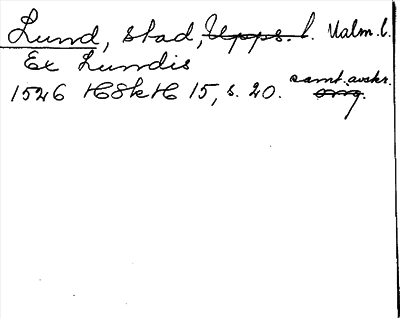 Lund, stad, Upps. l. Malm. l.
Ex Lundis
1526 HSkH 15, s. 20. samt. avskr.
orig.